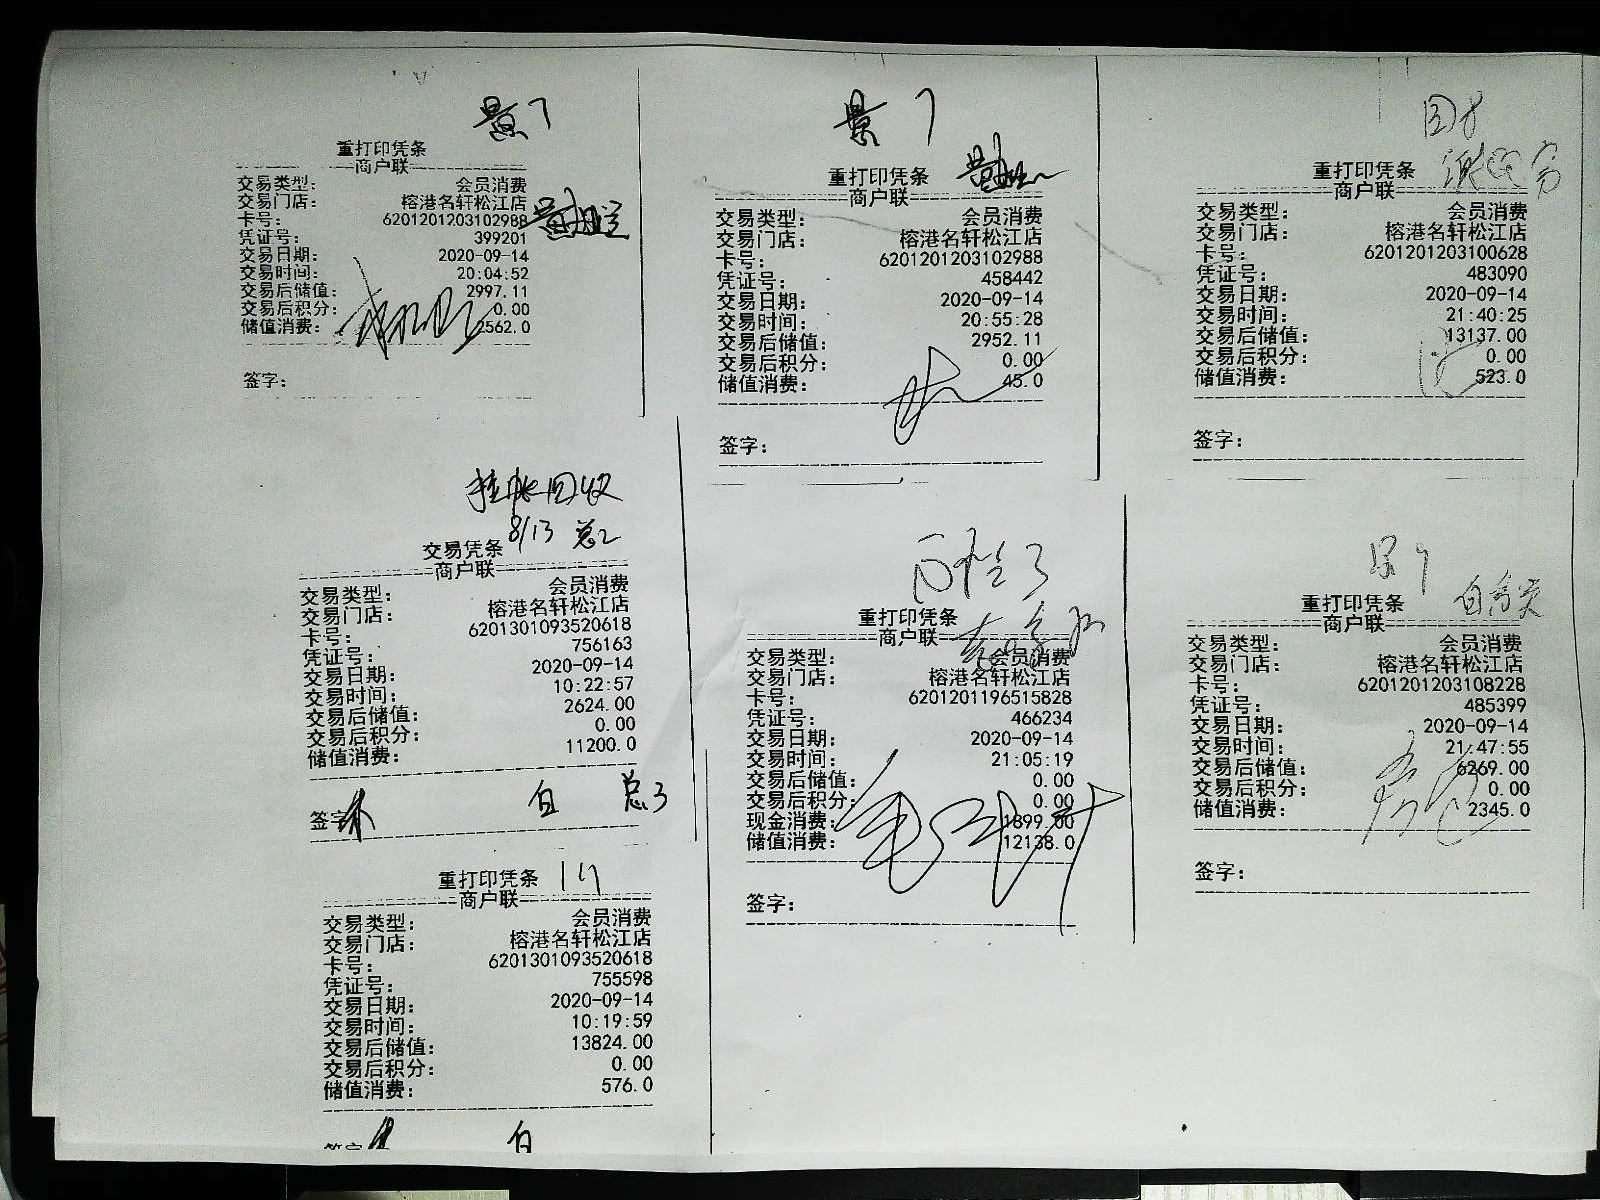 景7
重打印凭条
商户联
交易类型: 会员消费
交易门店: 榕港名轩松江店
卡号: 6201201203102988
凭证号: 399201
交易日期: 2020-09-14
交易时间: 20:04:52
交易后储值: 2997.11
交易后积分: 0.00
储值消费: 2562.0
签字:
景7
重打印凭条
商户联
交易类型: 会员消费
交易门店: 榕港名轩松江店
卡号: 6201201203102988
凭证号: 458442
交易日期: 2020-09-14
交易时间: 20:55:28
交易后储值: 2952.11
交易后积分: 0.00
储值消费: 45.0
签字:
重打印凭条
商户联
交易类型: 会员消费
交易门店: 榕港名轩松江店
卡号: 6201201203100628
凭证号: 483090
交易日期: 2020-09-14
交易时间: 21:40:25
交易后储值: 13137.00
交易后积分: 0.00
储值消费: 523.0
签字:
挂账回收
8/13 总2
交易凭条
商户联
交易类型: 会员消费
交易门店: 榕港名轩松江店
卡号: 6201301093520618
凭证号: 756163
交易日期: 2020-09-14
交易时间: 10:22:57
交易后储值: 2624.00
交易后积分: 0.00
储值消费: 11200.0
签字 白 总3
重打印凭条
商户联
交易类型: 会员消费
交易门店: 榕港名轩松江店
卡号: 6201201196515828
凭证号: 466234
交易日期: 2020-09-14
交易时间: 21:05:19
交易后储值: 0.00
交易后积分: 0.00
现金消费: 1899.00
储值消费: 12138.0
签字:
重打印凭条
商户联
交易类型: 会员消费
交易门店: 榕港名轩松江店
卡号: 6201201203108228
凭证号: 485399
交易日期: 2020-09-14
交易时间: 21:47:55
交易后储值: 6269.00
交易后积分: 0.00
储值消费: 2345.0
签字:
重打印凭条
商户联
交易类型: 会员消费
交易门店: 榕港名轩松江店
卡号: 6201301093520618
凭证号: 755598
交易日期: 2020-09-14
交易时间: 10:19:59
交易后储值: 13824.00
交易后积分: 0.00
储值消费: 576.0
签字 白